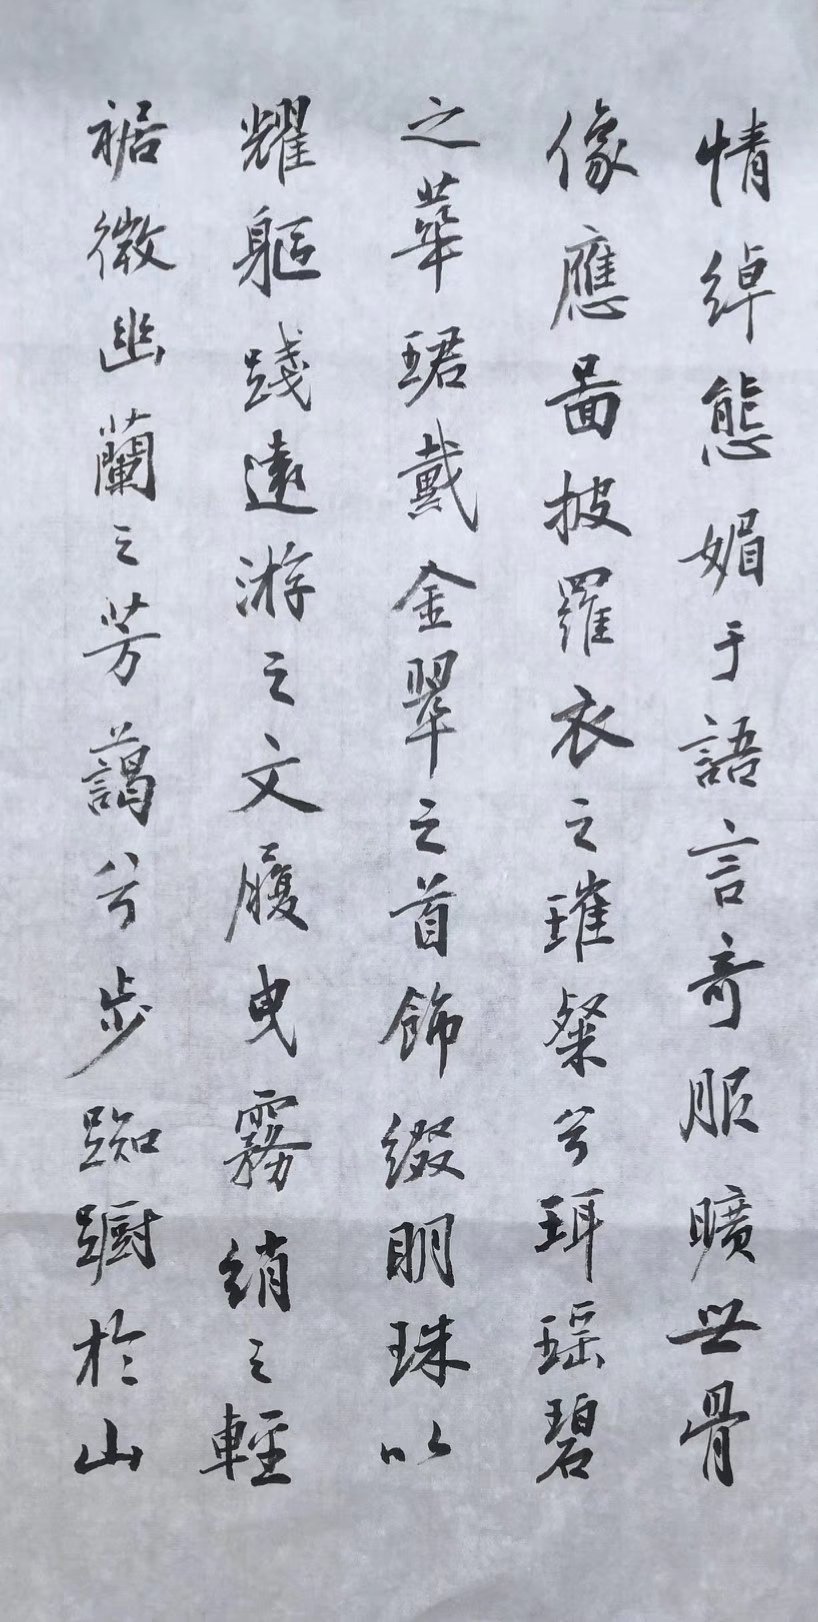 情綽態媚于語言奇服曠世骨
像應圖披羅衣之璀粲兮珥瑶碧
之華琚戴金翠之首飾綴明珠以
耀軀踐遠游之文履曳霧綃之輕
裾微幽蘭之芳藹兮步踟躕於山